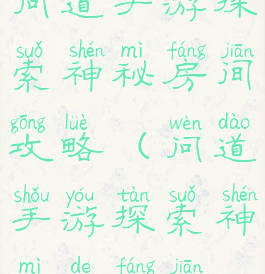 问道手游探
suǒ shén mì fáng jiān
索神秘房间
gōng lüè wèn dào
攻略（问道
shǒu yóu tàn suǒ shén
手游探索神
mì de fáng jiān